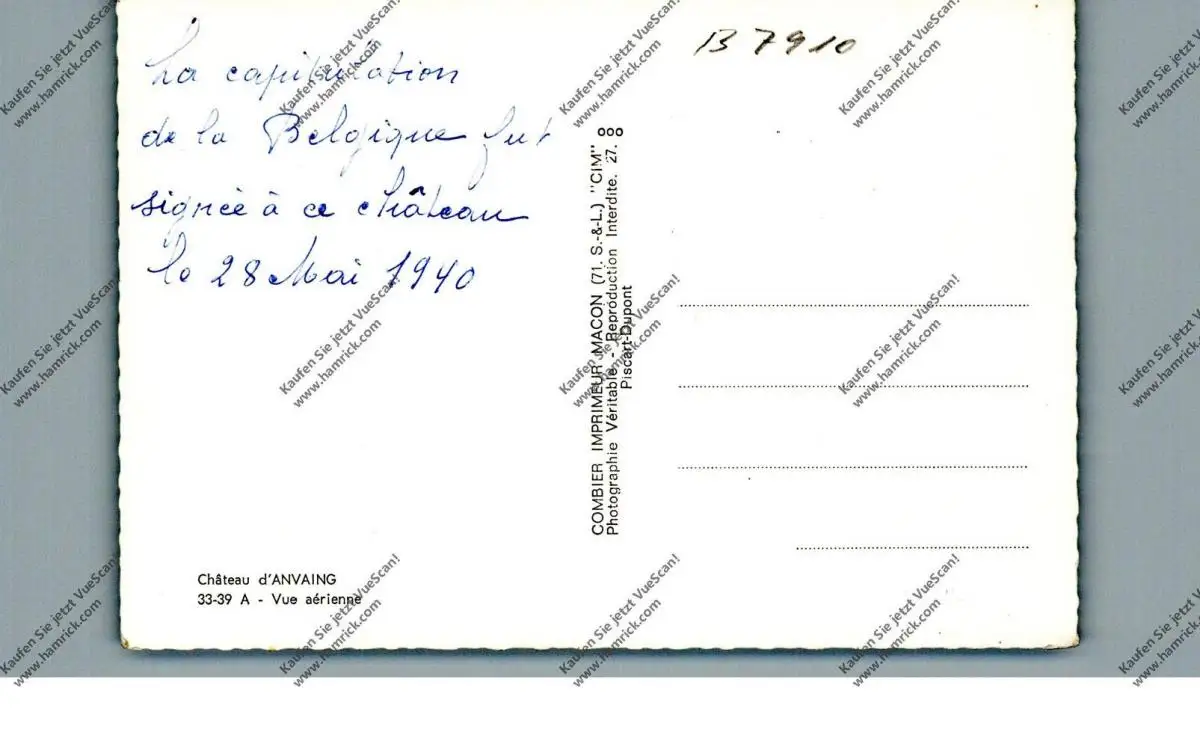 La capitulation
de la Belgique fut
signée à ce château
le 28 Mai 1940
B 7910
COMBIER IMPRIMEUR MACON (71. S.-&-L.) "CIM" ooo
Photographie Véritable - Reproduction Interdite. 27.
Piscart-Dupont
Château d'ANVAING
33-39 A - Vue aérienne
Kaufen Sie jetzt VueScan!
www.hamrick.com